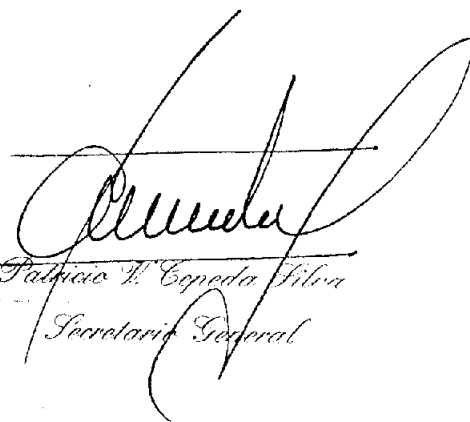 Patricio V. Cepeda Silva
Secretario General